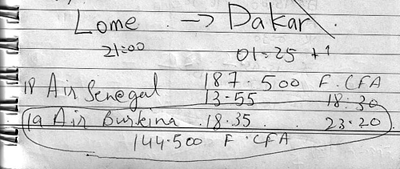 Lome → Dakar
21:00 01:25 +1
18 Air Senegal 187.500 F.CFA
13.55 18:30
19 Air Burkina 18.35 23.20
144.500 F.CFA